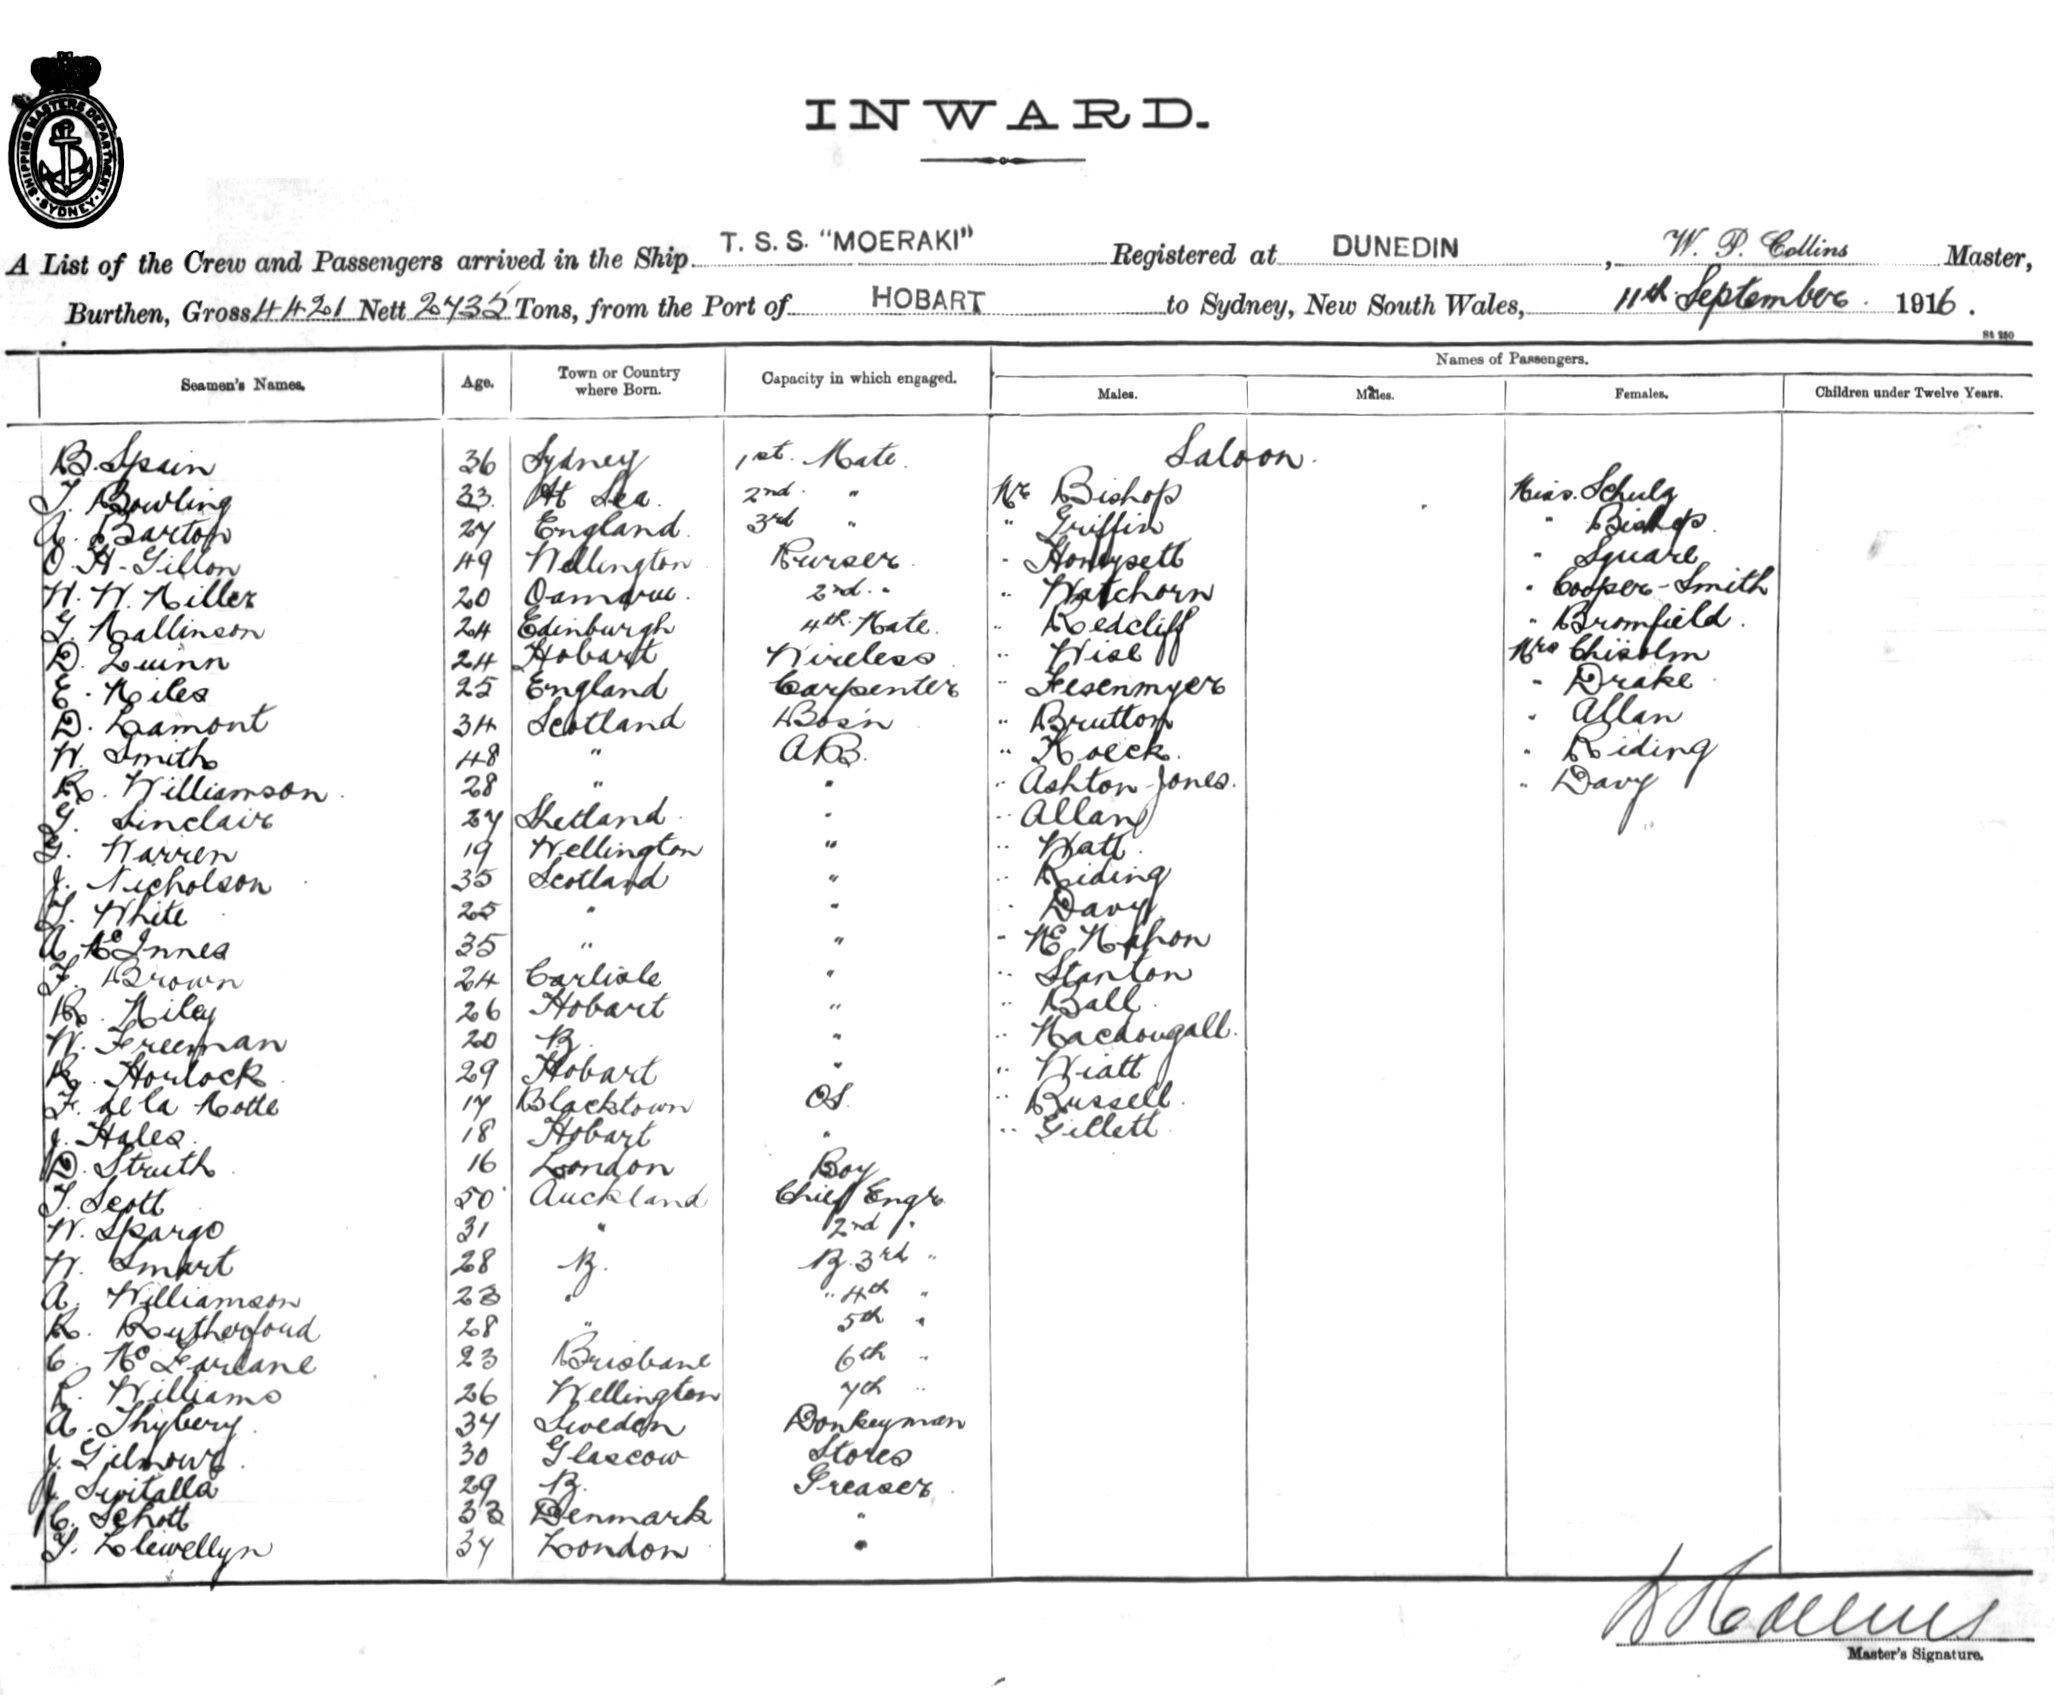 SHIPPING MASTERS DEPARTMENT. SYDNEY.
INWARD.
A List of the Crew and Passengers arrived in the Ship T. S. S. "MOERAKI" Registered at DUNEDIN, W. P. Collins Master,
Burthen, Gross 4421 Nett 2735 Tons, from the Port of HOBART to Sydney, New South Wales, 11th September. 1916.
St 250
Seamen's Names. Age. Town or Country where Born. Capacity in which engaged. Names of Passengers.
Males. Males. Females. Children under Twelve Years.
B. Spain 36 Sydney 1st. Mate. Saloon.
T. Bowling 33 At Sea. 2nd. " Mr Bishop Miss. Schulz
A. Barton 27 England. 3rd " " Griffin " Bishop.
O. H. Gillon 49 Wellington Purser. " Honeysett " Square
W. W. Miller 20 Oamaru. 2nd. " " Watchorn " Cooper-Smith
G. Mallinson 24 Edinburgh 4th. Mate. " Redcliff " Bromfield.
D. Quinn 24 Hobart Wireless " Wise Mrs Chisolm
E. Miles 25 England Carpenter " Fesenmyer " Drake
D. Lamont 34 Scotland Bos'n " Brutton " Allan
W. Smith 48 " A.B. " Koeck. " Riding
R. Williamson. 28 " " " Ashton-Jones. " Davy
G. Sinclair 27 Shetland " " Allan
G. Warren 19 Wellington " " Watt.
J. Nicholson 35 Scotland " " Riding
T. White 25 " " " Davy
A. McInnes 35 " " " McMahon
F. Brown 24 Carlisle " " Stanton
R. Riley 26 Hobart " " Ball.
W. Freeman 20 " " Macdougall.
R. Horlock 29 Hobart " " Wiatt
F. de la Motte 17 Blacktown OS. " Russell.
J. Hales. 18 Hobart " " Gillett.
D. Struth 16 London Boy
T. Scott 50 Auckland Chief Engr
W. Spargo 31 " 2nd "
W. Smart 28 3rd "
A. Williamson 23 " " 4th "
R. Rutherfoud 28 " 5th "
C. McFarlane 23 Brisbane 6th "
R. Williams 26 Wellington 7th "
A. Thybery. 34 Sweden Donkeyman
J. Gilmour. 30 Glascow Stores
J. Switalla 29 Greaser
C. Schott 33 Denmark "
G. Llewellyn 34 London "
Master's Signature.